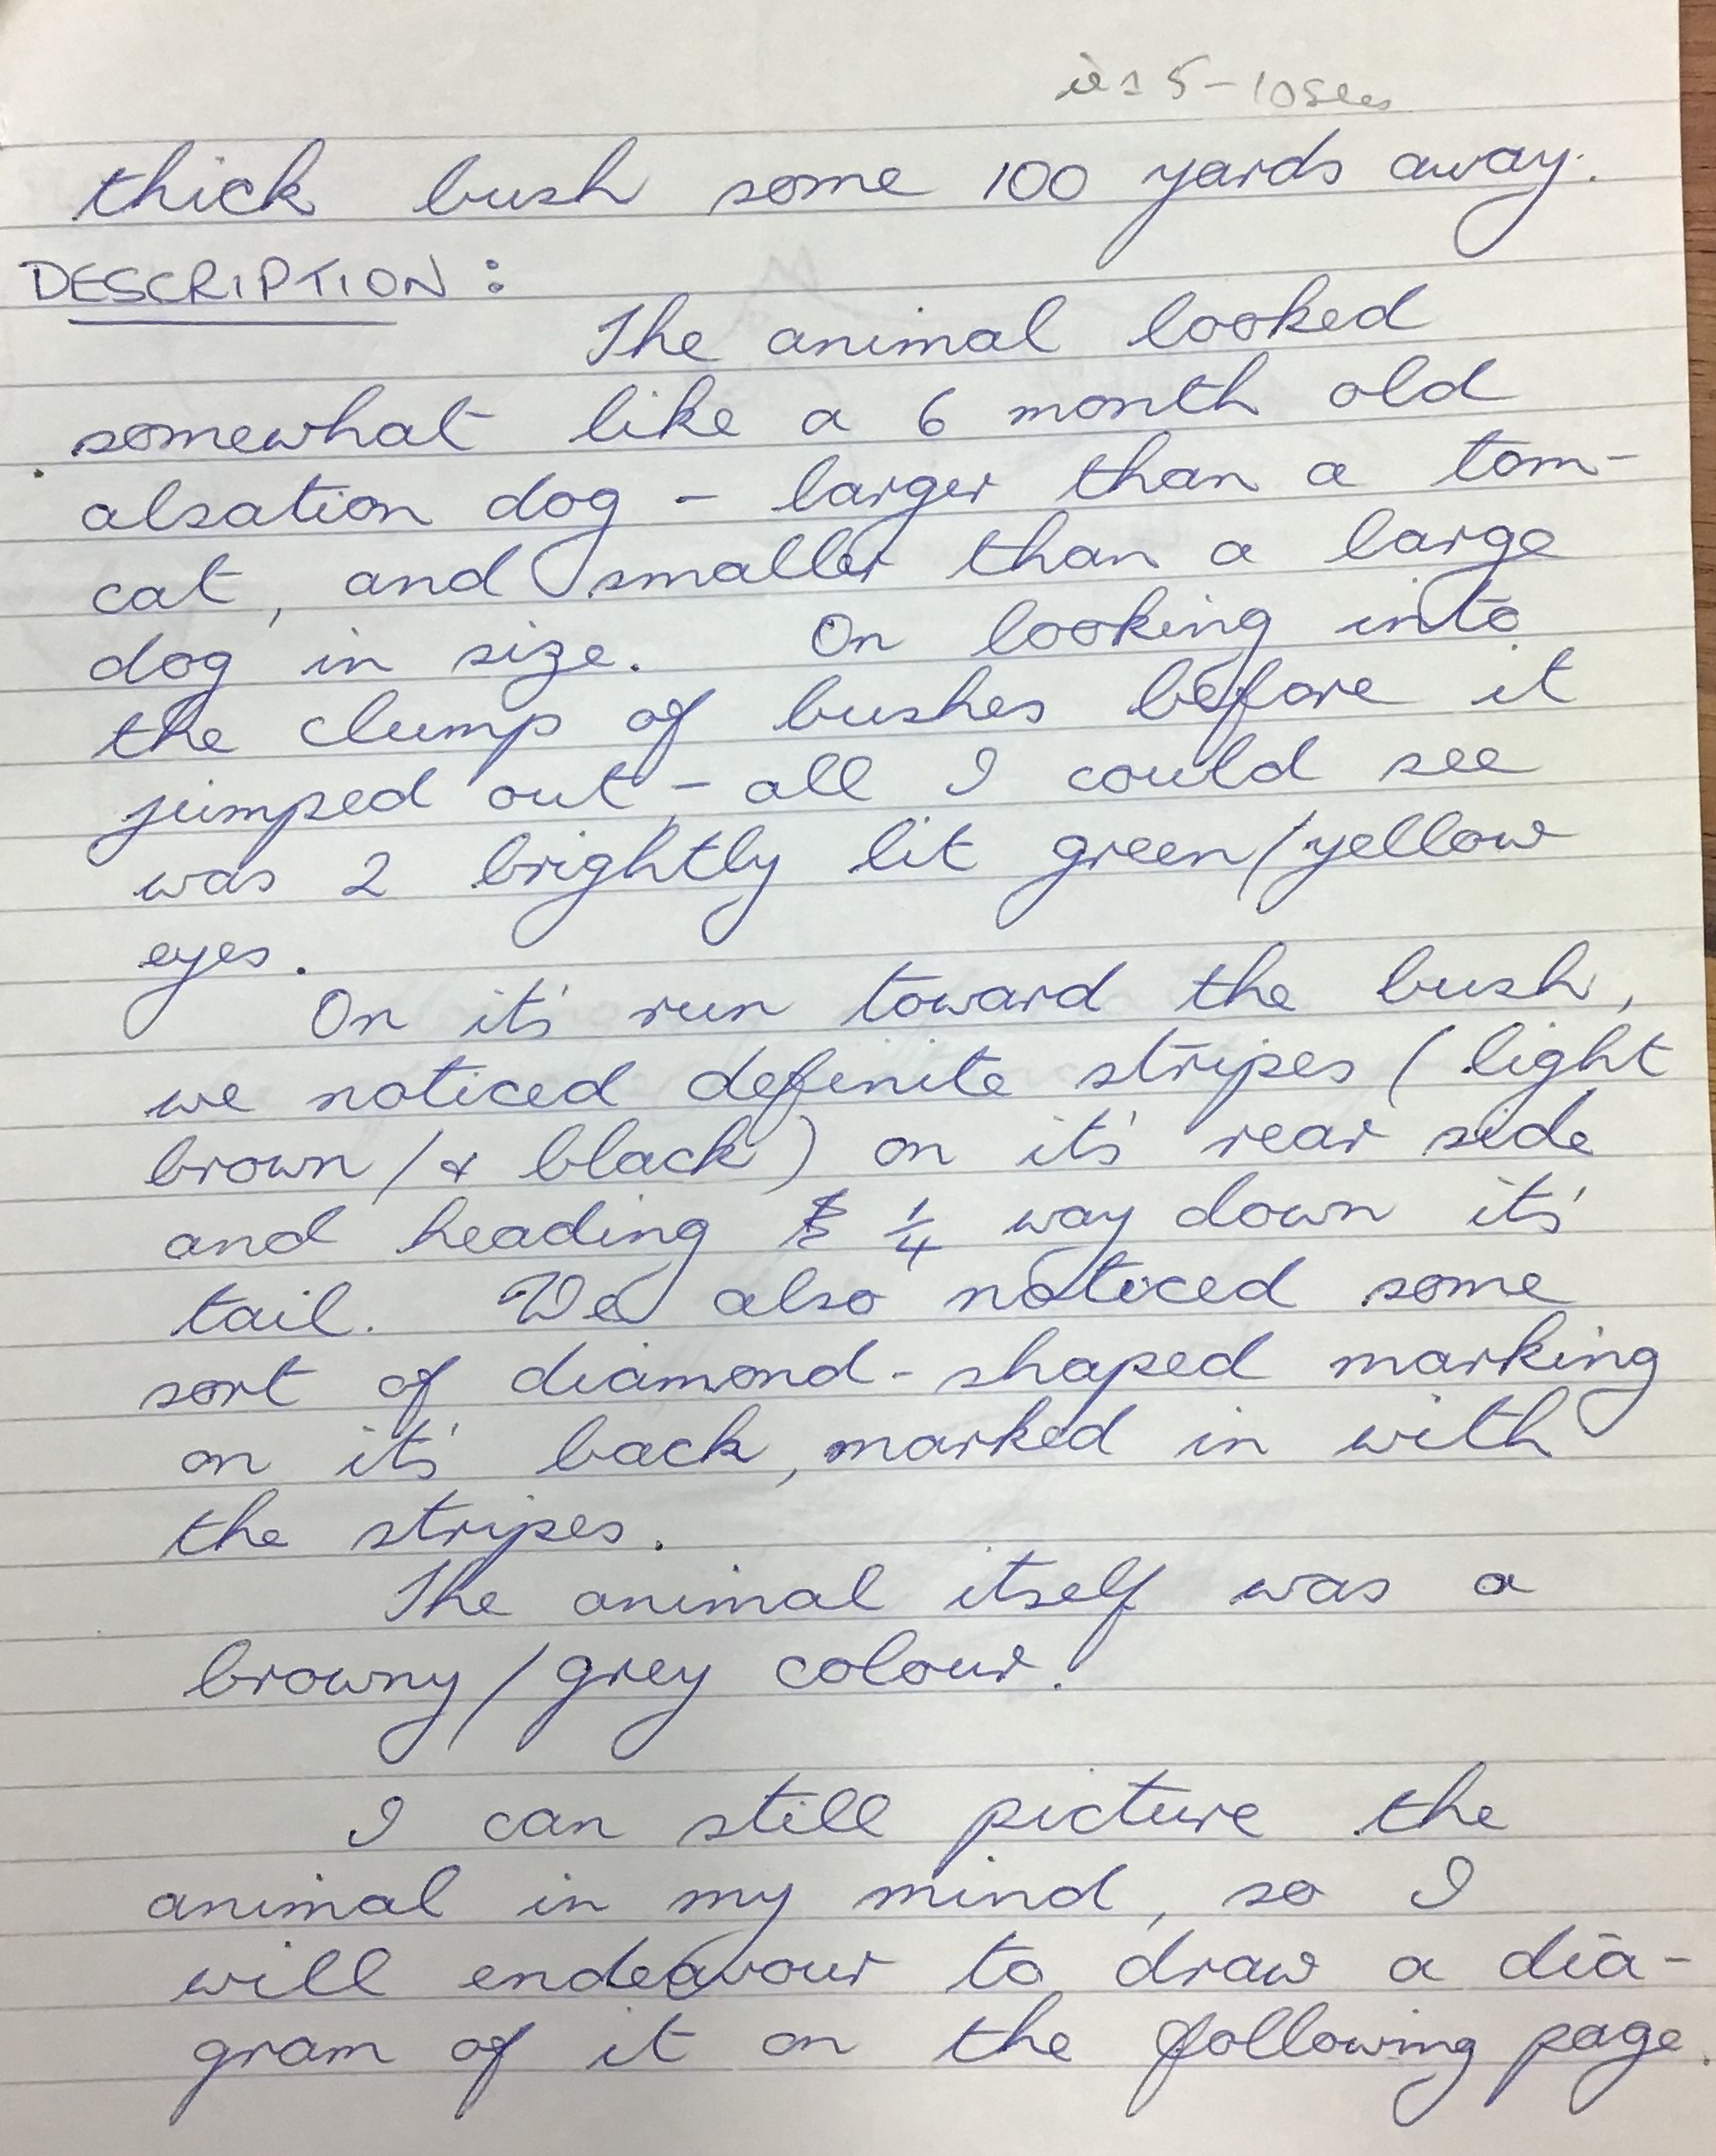 5-10secs
thick bush some 100 yards away.
DESCRIPTION:
The animal looked
somewhat like a 6 month old
alsation dog - larger than a tom-
cat, and smaller than a large
dog in size. On looking into
the clump of bushes before it
jumped out - all I could see
was 2 brightly lit green/yellow
eyes.
On it's run toward the bush,
we noticed definite stripes (light
brown/& black) on it's rear side
and heading 1/4 way down it's
tail. We also noticed some
sort of diamond-shaped marking
on it's back, marked in with
the stripes.
The animal itself was a
browny/grey colour.
I can still picture the
animal in my mind, so I
will endeavour to draw a dia-
gram of it on the following page.